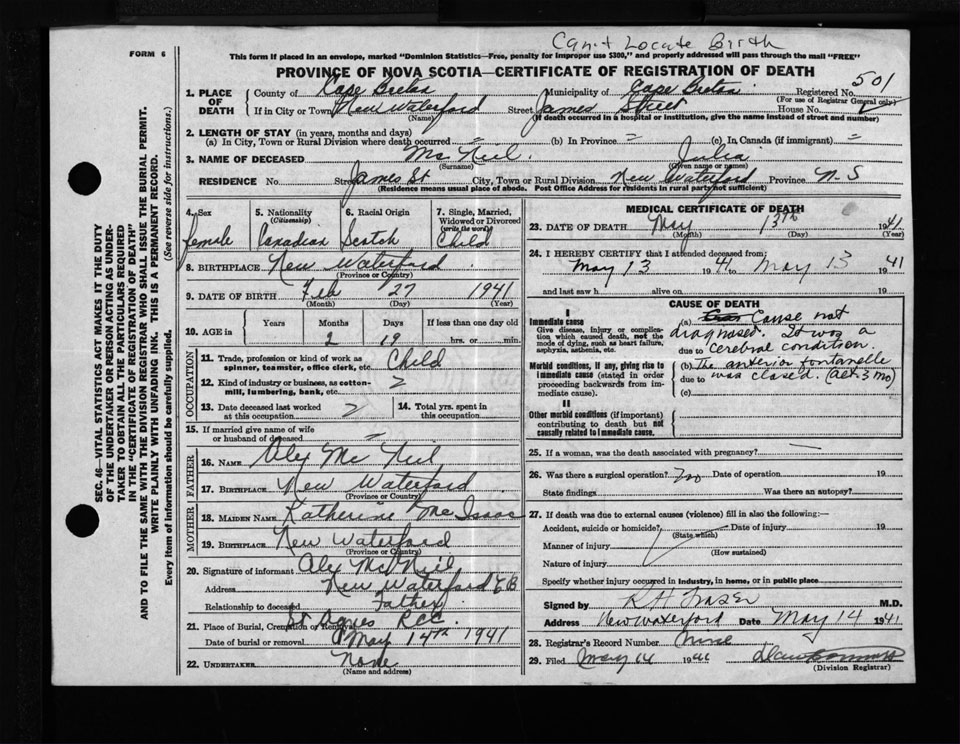 Can't Locate Birth
FORM 6
This form if placed in an envelope, marked "Dominion Statistics—Free, penalty for improper use $300," and properly addressed will pass through the mail "FREE"
PROVINCE OF NOVA SCOTIA—CERTIFICATE OF REGISTRATION OF DEATH
1. PLACE OF DEATH County of Cape Breton Municipality of Cape Breton Registered No. 501
(For use of Registrar General only)
If in City or Town New Waterford Street James Street House No.
(Name) (If death occurred in a hospital or institution, give the name instead of street and number)
2. LENGTH OF STAY (in years, months and days)
(a) In City, Town or Rural Division where death occurred = (b) In Province = (c) In Canada (if immigrant) =
3. NAME OF DECEASED Mc Neil. Julia
(Surname) (Given name or names)
RESIDENCE No. Street James St City, Town or Rural Division New Waterford Province N-S
(Residence means usual place of abode. Post Office Address for residents in rural party not sufficient)
4. Sex female
5. Nationality (Citizenship) Canadian
6. Racial Origin Scotch
7. Single, Married, Widowed or Divorced (write the word) Child
8. BIRTHPLACE New Waterford
(Province or Country)
9. DATE OF BIRTH Feb 27 1941
(Month) (Day) (Year)
10. AGE in Years Months Days If less than one day old
2 19 hrs. or min.
OCCUPATION
11. Trade, profession or kind of work as spinner, teamster, office clerk, etc. Child
12. Kind of industry or business, as cotton-mill, lumbering, bank, etc.
13. Date deceased last worked at this occupation
14. Total yrs. spent in this occupation
15. If married give name of wife or husband of deceased =
FATHER
16. NAME Alex Mc Neil
17. BIRTHPLACE New Waterford
(Province or Country)
MOTHER
18. MAIDEN NAME Katherine Mc Isaac
19. BIRTHPLACE New Waterford
(Province or Country)
20. Signature of informant Alex McNeil
Address New Waterford CB
Relationship to deceased Father
21. Place of Burial, Cremation or Removal St Agnes RCC.
Date of burial or removal May 14th 1941
22. UNDERTAKER None
(Name and address)
MEDICAL CERTIFICATE OF DEATH
23. DATE OF DEATH May 13th 1941
(Month) (Day) (Year)
24. I HEREBY CERTIFY that I attended deceased from:
May 13 1941 to May 13 1941
and last saw h alive on 19
CAUSE OF DEATH
I
Immediate cause
Give disease, injury or complication which caused death, not the mode of dying, such as heart failure, asphyxia, asthenia, etc.
(a) Cause not
diagnosed. It was a
due to cerebral condition.
Morbid conditions, if any, giving rise to immediate cause (stated in order proceeding backwards from immediate cause).
(b) The anterior fontanelle
due to was closed. (aet 3 mo)
(c)
II
Other morbid conditions (if important) contributing to death but not causally related to immediate cause.
25. If a woman, was the death associated with pregnancy?
26. Was there a surgical operation? no Date of operation 19
State findings Was there an autopsy?
27. If death was due to external causes (violence) fill in also the following:—
Accident, suicide or homicide? Date of injury 19
(State which)
Manner of injury
(How sustained)
Nature of injury
Specify whether injury occurred in industry, in home, or in public place
Signed by R H Fraser M.D.
Address New Waterford Date May 14 1941
28. Registrar's Record Number
29. Filed May 14 19
(Division Registrar)
SEC. 46—VITAL STATISTICS ACT MAKES IT THE DUTY
OF THE UNDERTAKER OR PERSON ACTING AS UNDER-
TAKER TO OBTAIN ALL THE PARTICULARS REQUIRED
IN THE "CERTIFICATE OF REGISTRATION OF DEATH"
AND TO FILE THE SAME WITH THE DIVISION REGISTRAR WHO SHALL ISSUE THE BURIAL PERMIT.
WRITE PLAINLY WITH UNFADING INK. THIS IS A PERMANENT RECORD.
Every item of information should be carefully supplied. (See reverse side for instructions.)